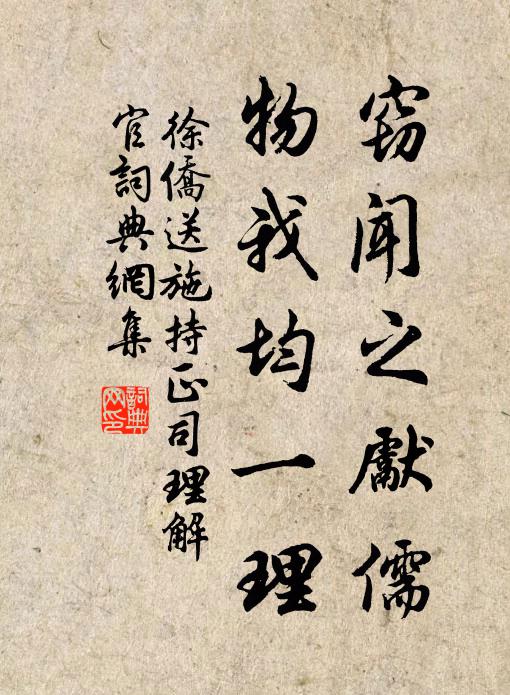 窃聞之獻儒
物我均一理
徐僑送施持正司理解
官詞典網集
詞典
网印